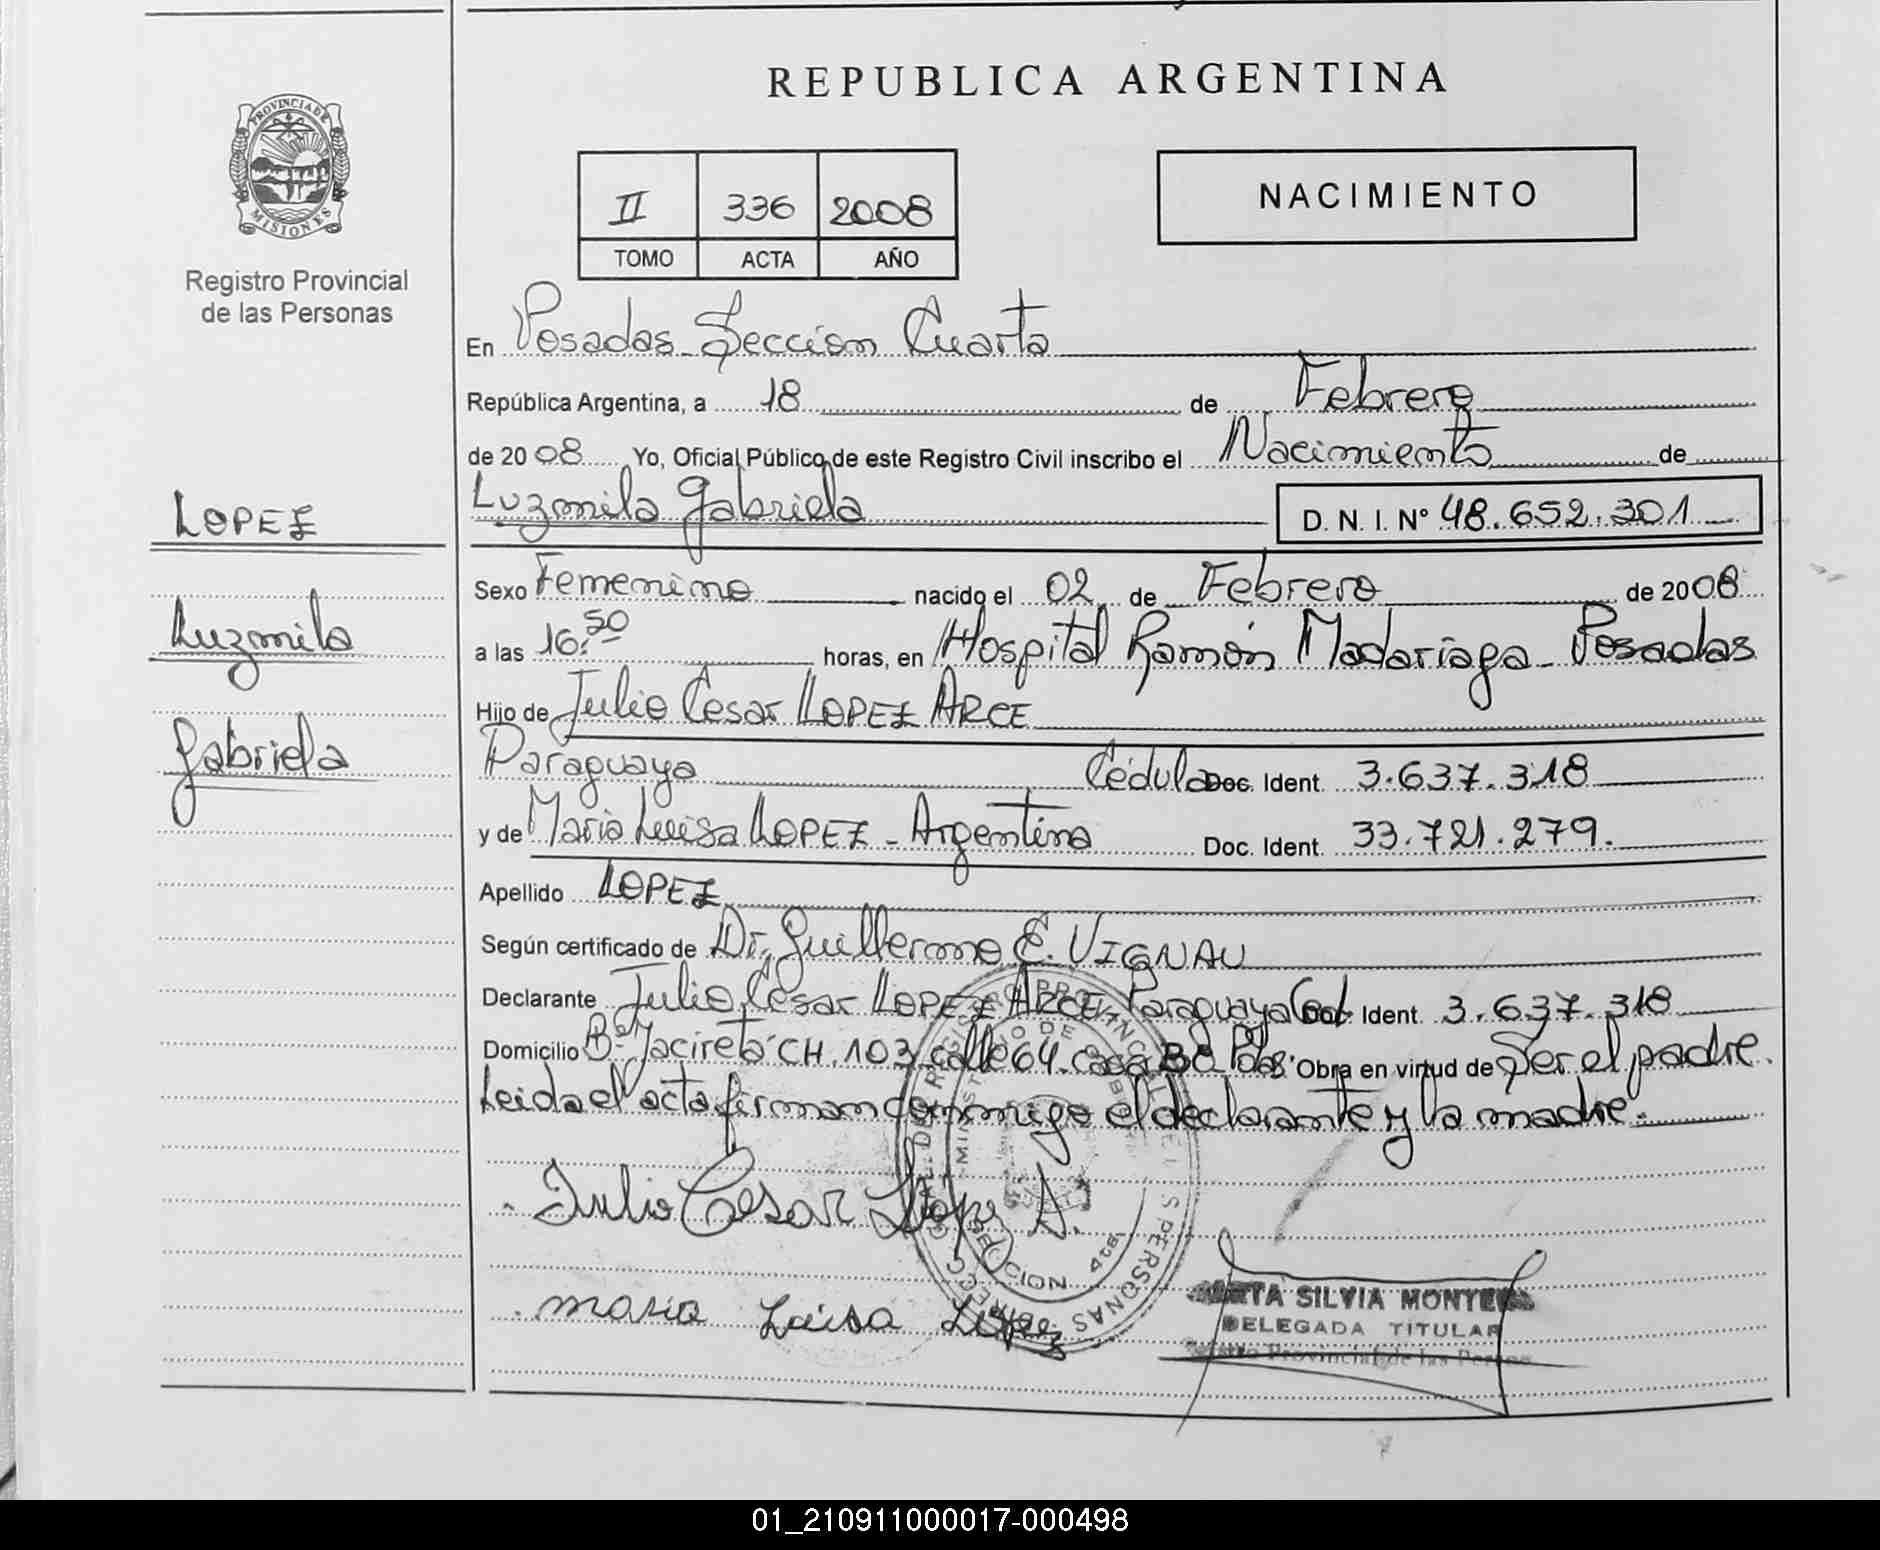 REPUBLICA ARGENTINA
PROVINCIA DE
MISIONES
Registro Provincial
de las Personas
II 336 2008
TOMO ACTA AÑO
NACIMIENTO
En Posadas - Sección Cuarta
República Argentina, a 18 de Febrero
de 2008 Yo, Oficial Público de este Registro Civil inscribo el Nacimiento de
LOPEZ
Luzmila Gabriela D. N. I. Nº 48.652.301
Sexo Femenino nacido el 02 de Febrero de 2008
Luzmila
a las 16:50 horas, en Hospital Ramón Madariaga - Posadas
Hijo de Julio Cesar LOPEZ ARCE
Gabriela
Paraguaya Cédula Doc. Ident. 3.637.318
y de Maria Luisa LOPEZ - Argentina Doc. Ident. 33.721.279.
Apellido LOPEZ
Según certificado de Dr. Guillermo E. VIGNAU
Declarante Julio Cesar LOPEZ ARCE - Paraguaya Ced. Doc. Ident. 3.637.318
Domicilio Bº Yacireta CH. 103 calle 64 - casa 38 Pdas. Obra en virtud de Ser el padre.
Leida el acta firman conmigo el declarante y la madre.
Julio Cesar Lópe A.
maria Luisa López
SILVIA
DELEGADA TITULAR
Provincial de las
01_210911000017-000498